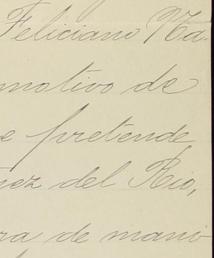 Feliciano Ma-
motivo de
e pretende
nez del Rio,
ra de mani-